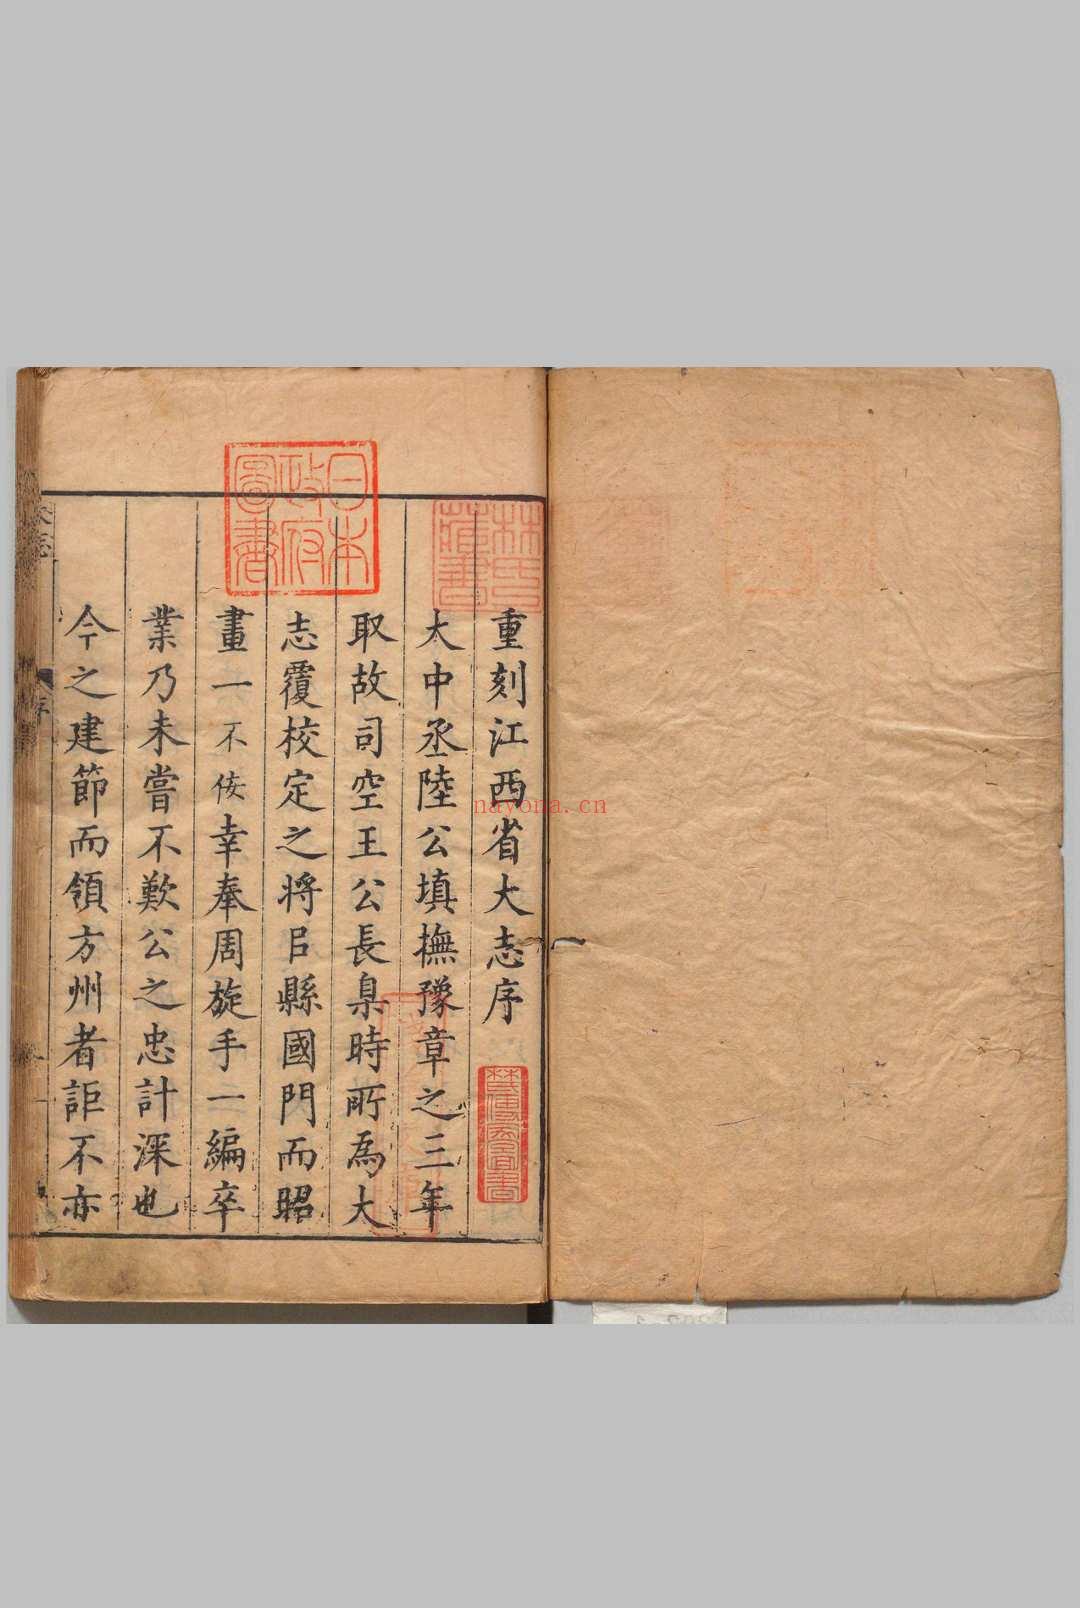 重刻江西省大志序
大中丞陸公填撫豫章之三年
取故司空王公長臬時所為大
志覆校定之將㠯縣國門而昭
畫一不佞幸奉周旋手一編卒
業乃未嘗不歎公之忠計深也
今之建節而領方州者詎不亦
日本
政府
圖書
林氏
藏書
nayona.cn
序